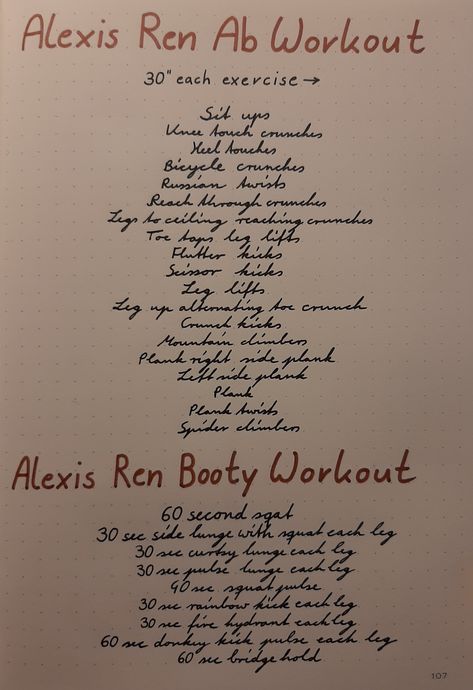 Alexis Ren Ab Workout
30" each exercise →
Sit ups
Knee touch crunches
Heel touches
Bicycle crunches
Russian twists
Reach through crunches
Legs to ceiling reaching crunches
Toe taps leg lifts
Flutter kicks
Scissor kicks
Leg lifts
Leg up alternating toe crunch
Crunch kicks
Mountain climbers
Plank right side plank
Left side plank
Plank
Plank twists
Spider climbers
Alexis Ren Booty Workout
60 second sqat
30 sec side lunge with squat each leg
30 sec curtsy lunge each leg
30 sec pulse lunge each leg
40 sec squat pulse
30 sec rainbow kick each leg
30 sec fire hydrant each leg
60 sec donkey kick pulse each leg
60 sec bridge hold
107